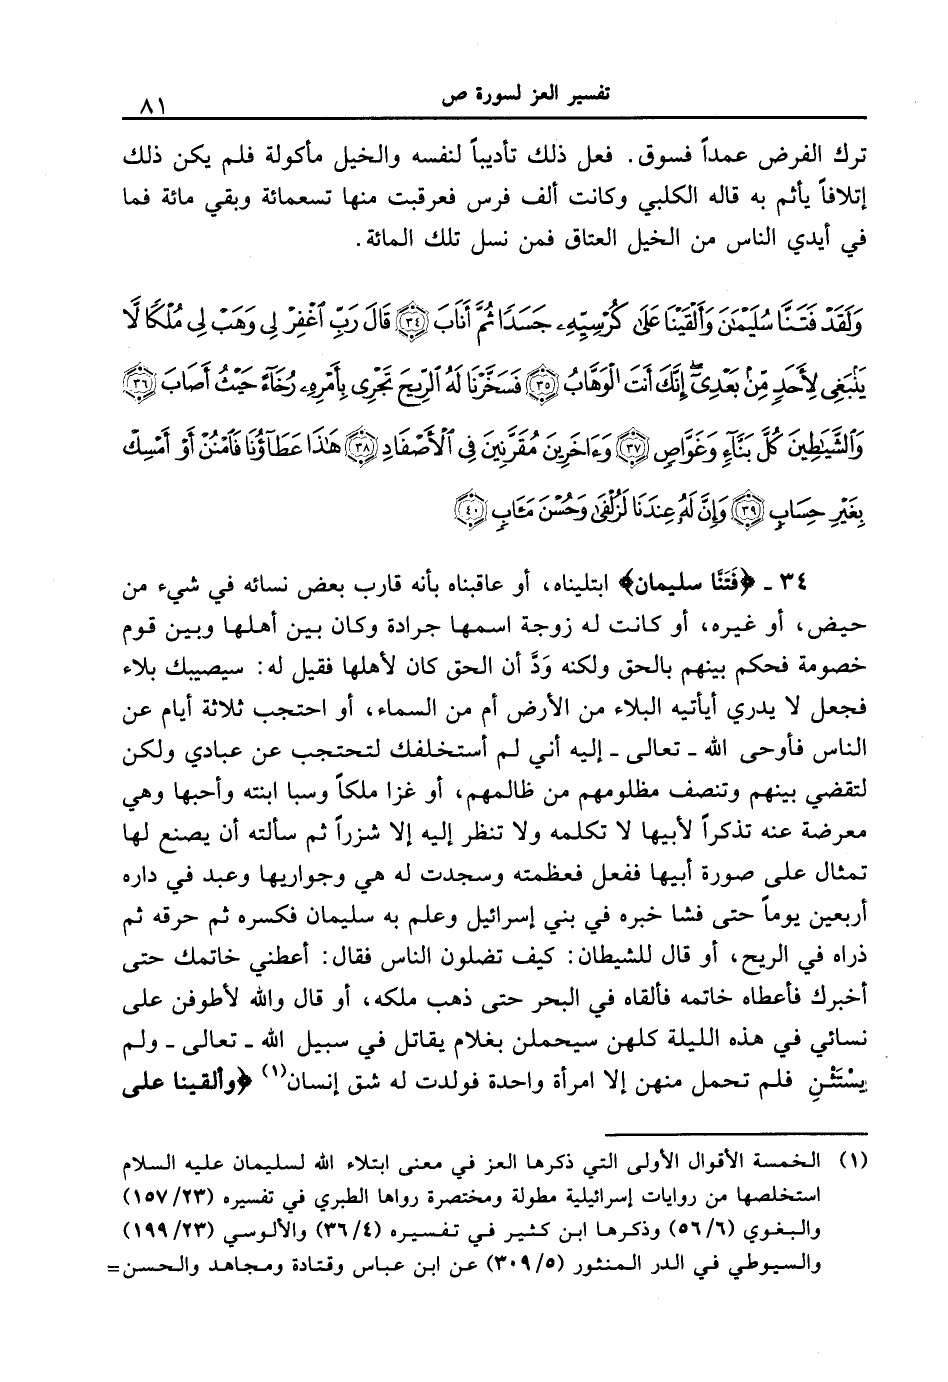 تفسير العز لسورة ص
٨١
ترك الفرض عمداً فسوق. فعل ذلك تأديباً لنفسه والخيل مأكولة فلم يكن ذلك
إتلافاً يأثم به قاله الكلبي وكانت ألف فرس فعرقبت منها تسعمائة وبقي مائة فما
في أيدي الناس من الخيل العتاق فمن نسل تلك المائة.
وَلَقَدْ فَتَنَّا سُلَيْمَٰنَ وَأَلْقَيْنَا عَلَىٰ كُرْسِيِّهِۦ جَسَدًا ثُمَّ أَنَابَ ﴿٣٤﴾ قَالَ رَبِّ ٱغْفِرْ لِى وَهَبْ لِى مُلْكًا لَّا
يَنۢبَغِى لِأَحَدٍ مِّنۢ بَعْدِىٓ ۖ إِنَّكَ أَنتَ ٱلْوَهَّابُ ﴿٣٥﴾ فَسَخَّرْنَا لَهُ ٱلرِّيحَ تَجْرِى بِأَمْرِهِۦ رُخَآءً حَيْثُ أَصَابَ ﴿٣٦﴾
وَٱلشَّيَٰطِينَ كُلَّ بَنَّآءٍ وَغَوَّاصٍ ﴿٣٧﴾ وَءَاخَرِينَ مُقَرَّنِينَ فِى ٱلْأَصْفَادِ ﴿٣٨﴾ هَٰذَا عَطَآؤُنَا فَٱمْنُنْ أَوْ أَمْسِكْ
بِغَيْرِ حِسَابٍ ﴿٣٩﴾ وَإِنَّ لَهُۥ عِندَنَا لَزُلْفَىٰ وَحُسْنَ مَـَٔابٍ ﴿٤٠﴾
٣٤ - ﴿فَتَنَّا سليمان﴾ ابتليناه، أو عاقبناه بأنه قارب بعض نسائه في شيء من
حيض، أو غيره، أو كانت له زوجة اسمها جرادة وكان بين أهلها وبين قوم
خصومة فحكم بينهم بالحق ولكنه وَدَّ أن الحق كان لأهلها فقيل له: سيصيبك بلاء
فجعل لا يدري أيأتيه البلاء من الأرض أم من السماء، أو احتجب ثلاثة أيام عن
الناس فأوحى الله - تعالى - إليه أني لم أستخلفك لتحتجب عن عبادي ولكن
لتقضي بينهم وتنصف مظلومهم من ظالمهم، أو غزا ملكاً وسبا ابنته وأحبها وهي
معرضة عنه تذكراً لأبيها لا تكلمه ولا تنظر إليه إلا شزراً ثم سألته أن يصنع لها
تمثال على صورة أبيها ففعل فعظمته وسجدت له هي وجواريها وعبد في داره
أربعين يوماً حتى فشا خبره في بني إسرائيل وعلم به سليمان فكسره ثم حرقه ثم
ذراه في الريح، أو قال للشيطان: كيف تضلون الناس فقال: أعطني خاتمك حتى
أخبرك فأعطاه خاتمه فألقاه في البحر حتى ذهب ملكه، أو قال والله لأطوفن على
نسائي في هذه الليلة كلهن سيحملن بغلام يقاتل في سبيل الله - تعالى - ولم
يسْتَثْنِ فلم تحمل منهن إلا امرأة واحدة فولدت له شق إنسان(١) ﴿وألقينا على
(١) الخمسة الأقوال الأولى التي ذكرها العز في معنى ابتلاء الله لسليمان عليه السلام
استخلصها من روايات إسرائيلية مطولة ومختصرة رواها الطبري في تفسيره (٢٣/١٥٧)
والبغوي (٦/٥٦) وذكرها ابن كثير في تفسيره (٤/٣٦) والألوسي (٢٣/١٩٩)
والسيوطي في الدر المنثور (٥/٣٠٩) عن ابن عباس وقتادة ومجاهد والحسن=